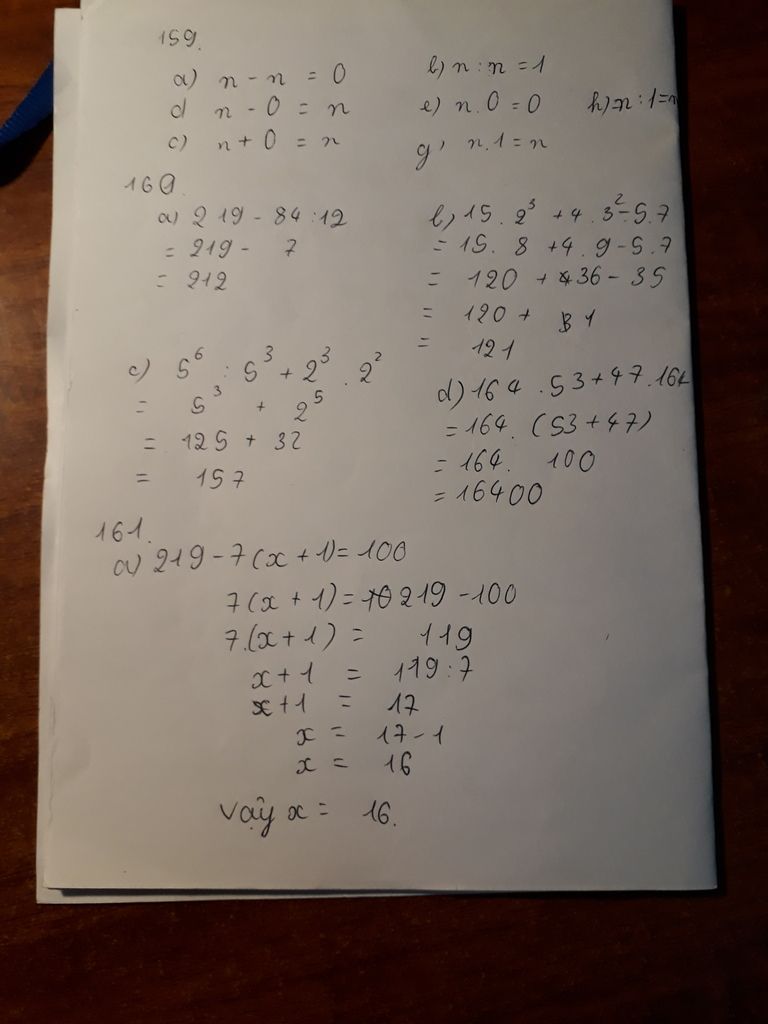 159.
a) n - n = 0
b) n : n = 1
d n - 0 = n
e) n . 0 = 0
h) n : 1 = n
c) n + 0 = n
g) n . 1 = n
160.
a) 219 - 84 : 12
= 219 - 7
= 212
b) 15 . 2³ + 4 . 3² - 5 . 7
= 15 . 8 + 4 . 9 - 5 . 7
= 120 + 36 - 35
= 120 + 1
= 121
c) 5⁶ : 5³ + 2³ . 2²
= 5³ + 2⁵
= 125 + 32
= 157
d) 164 . 53 + 47 . 164
= 164 . (53 + 47)
= 164 . 100
= 16400
161.
a) 219 - 7 (x + 1) = 100
7 (x + 1) = 219 - 100
7.(x + 1) = 119
x + 1 = 119 : 7
x + 1 = 17
x = 17 - 1
x = 16
Vậy x = 16.